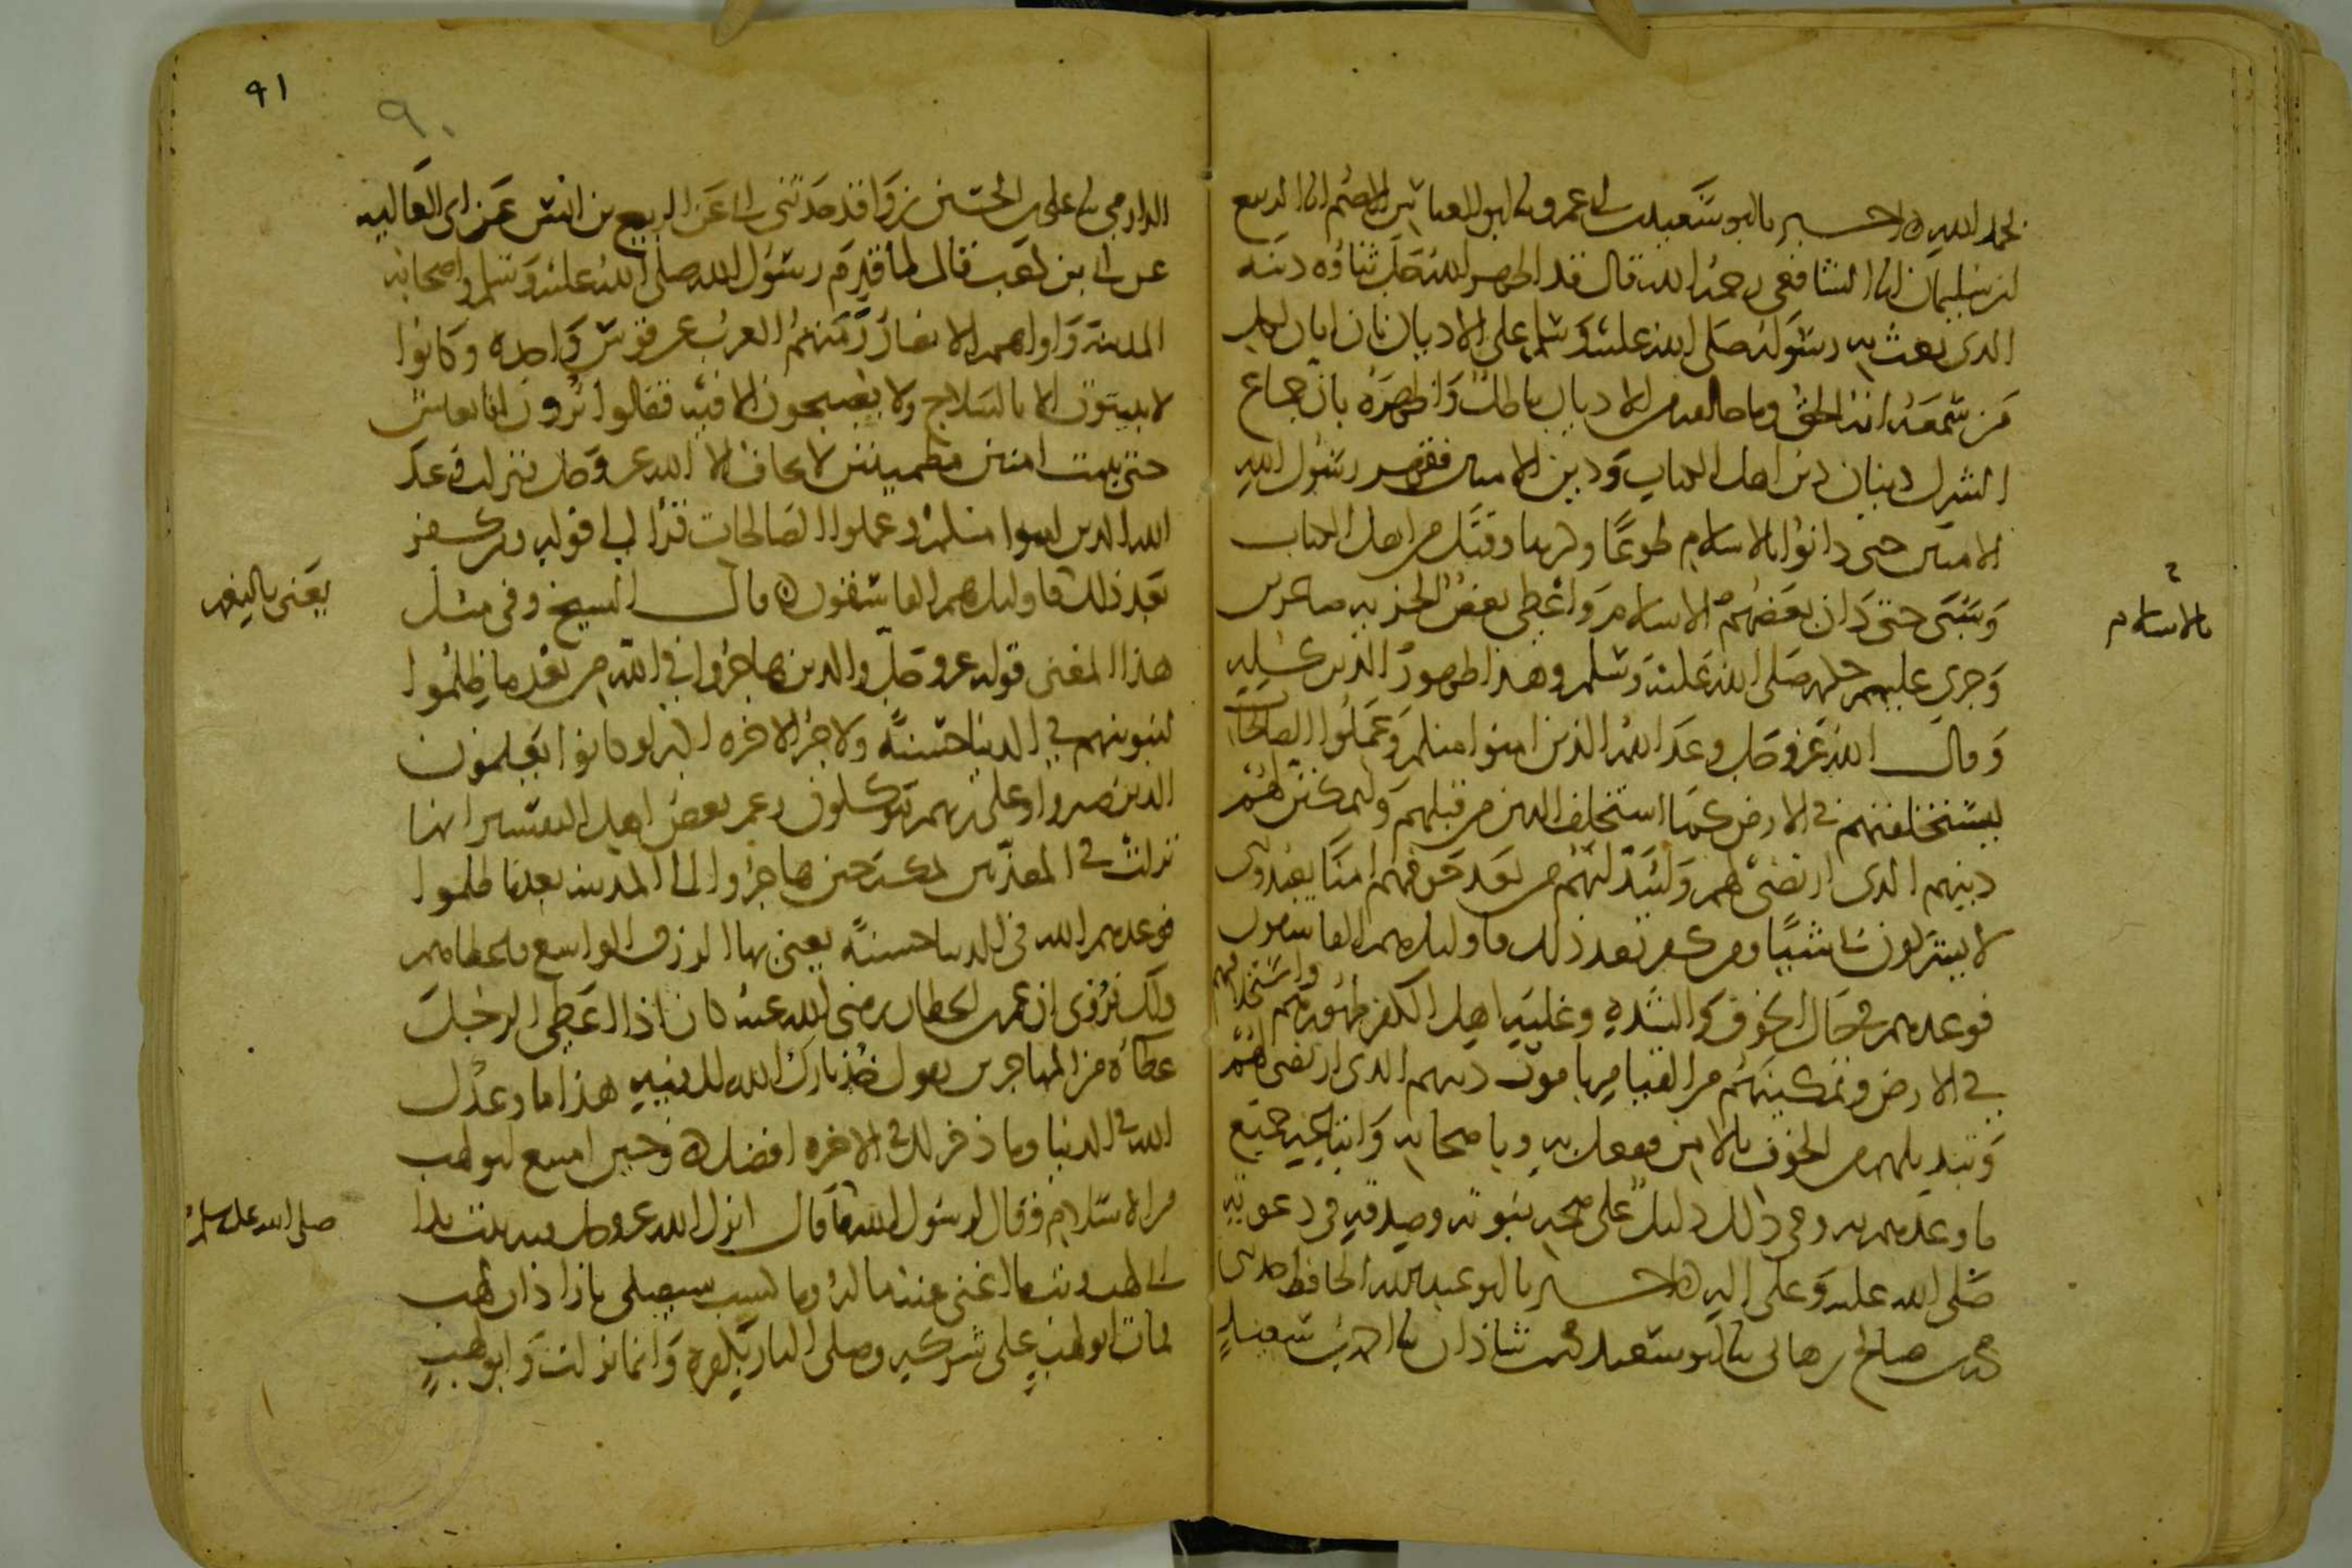 بحمد الله ه اخبرنا ابو سعيد بن ابى عمرو نا ابو العباس الاصم انا الربيع
بن سليمان انا الشافعى رحمه الله قال قد اظهر الله جل ثناؤه دينه
الذى بعث به رسوله صلى الله عليه وسلم على الاديان بان ابان لكل
من سمعه انه الحق وما خالفه من الاديان باطل واظهره بان جماع
الشرك دينان دين اهل الكتاب ودين الاميين فقهر رسول الله
الاميين حتى دانوا بالاسلام طوعا وكرها وقتل من اهل الكتاب
وسبى حتى دان بعضهم الاسلام واعطى بعض الجزيه صاغرين
بالاسلام
وجرى عليهم حكمه صلى الله عليه وسلم وهذا ظهور الدين كله
وقال الله عز وجل وعد الله الذين امنوا منكم وعملوا الصالحات
ليستخلفنهم فى الارض كما استخلف الذين من قبلهم وليمكنن لهم
دينهم الذى ارتضى لهم وليبدلنهم من بعد خوفهم امنا يعبدونى
لا يشركون بى شيئا ومن كفر بعد ذلك فاوليك هم الفاسقون
فوعدهم فى حال الخوف والشده وغلبه اهل الكفر ظهورهم واستخلافهم
فى الارض وتمكينهم من القيام بها موت دينهم الذى ارتضى لهم
وتبديلهم من الخوف بالامن ففعل به وباصحابه وانجز جميع
ما وعدهم به وفى ذلك دليل على صحه نبوته وصدقه فى دعوته
صلى الله عليه وعلى اله ه اخبرنا ابو عبد الله الحافظ حدثنى
محمد بن صالح بن هانى نا ابو سعيد محمد بن شاذان نا احمد بن سعيد
٩١
٩٠
الدارمى نا على بن الحسين بن واقد حدثنى ابى عن الربيع بن انس عن ابى العاليه
عن ابى بن كعب قال لما قدم رسول الله صلى الله عليه وسلم واصحابه
المدينه واواهم الانصار رمتهم العرب عن قوس واحده وكانوا
لا يبيتون الا بالسلاح ولا يصبحون الا فيه فقالوا ترون انا نعيش
حتى نبيت امنين مطمينين لا نخاف الا الله عز وجل فنزلت وعد
الله الذين امنوا منكم وعملوا الصالحات قرا الى قوله ومن كفر
بعد ذلك فاوليك هم الفاسقون ه قال الشيخ وفى مثل
يعنى بالنعم
هذا المعنى قوله عز وجل والذين هاجروا فى الله من بعد ما ظلموا
لنبوينهم فى الدنيا حسنه ولاجر الاخره اكبر لو كانوا يعلمون
الذين صبروا وعلى ربهم يتوكلون زعم بعض اهل التفسير انها
نزلت فى المعذبين بمكه حين هاجروا الى المدينه بعدما ظلموا
فوعدهم الله فى الدنيا حسنه يعنى بها الرزق الواسع فاعطاهم
ولك فروى ان عمر بن الخطاب رضى الله عنه كان اذا اعطى الرجل
عطاه من المهاجرين يقول خذ بارك الله لك فيه هذا ما وعدك
الله فى الدنيا وما ذخر لك فى الاخره افضل ه وحين امتنع ابو لهب
من الاسلام وقال لرسول الله ما قال انزل الله عز وجل فيه تبت يدا
صلى الله عليه وسلم
ابى لهب وتب ما اغنى عنه ماله وما كسب سيصلى نارا ذات لهب
فمات ابو لهب على شركه وصلى النار بكفره وانما نزلت وابو لهب